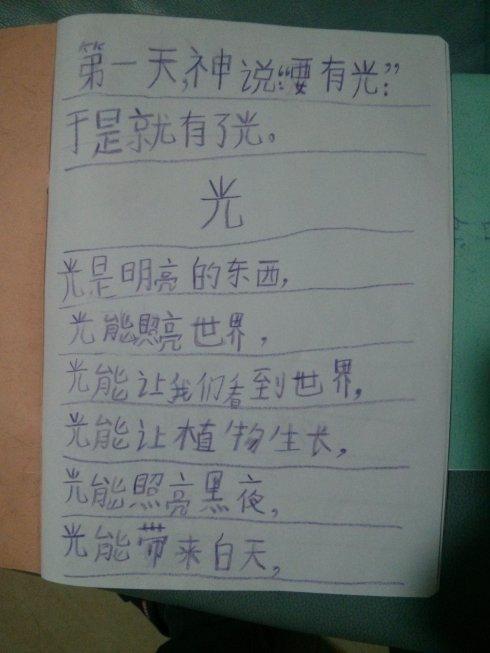 第一天,神说:“要有光;”
于是就有了光。
光
光是明亮的东西,
光能照亮世界,
光能让我们看到世界,
光能让植物生长,
光能照亮黑夜,
光能带来白天,